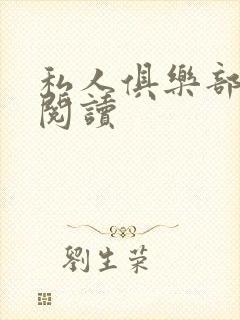 私人俱樂部
閱讀
劉生荣